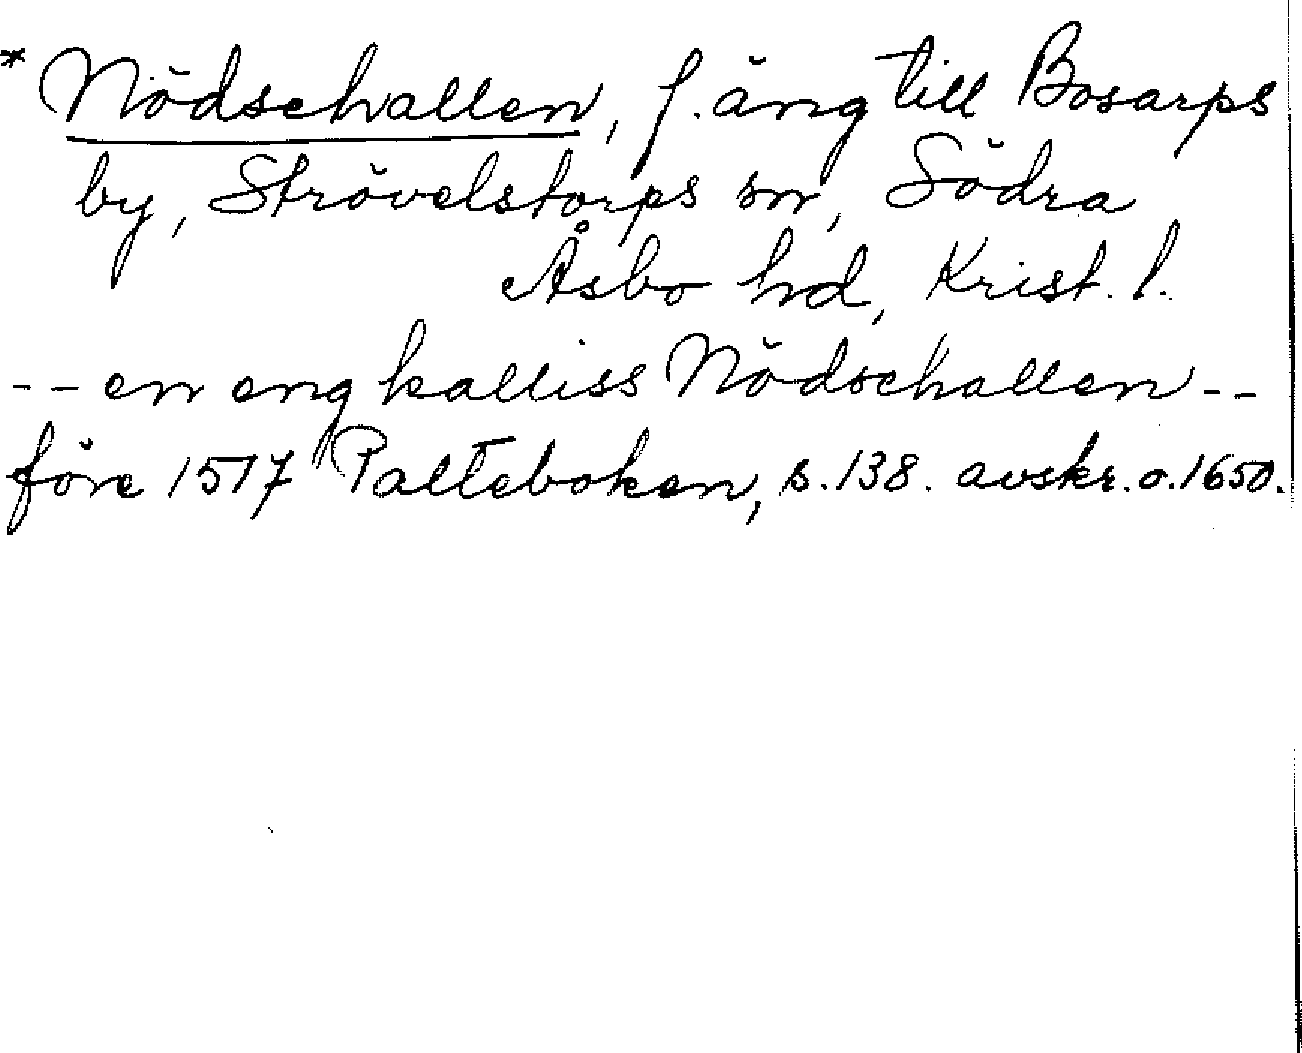 * Nödschallen, f. äng till Bosarps
by, Strövelstorps sn, Södra
Åsbo hd, Krist. l.
-- en eng kalliss Nödschallen --
före 1517 Palteboken, s. 138. avskr. o. 1650.